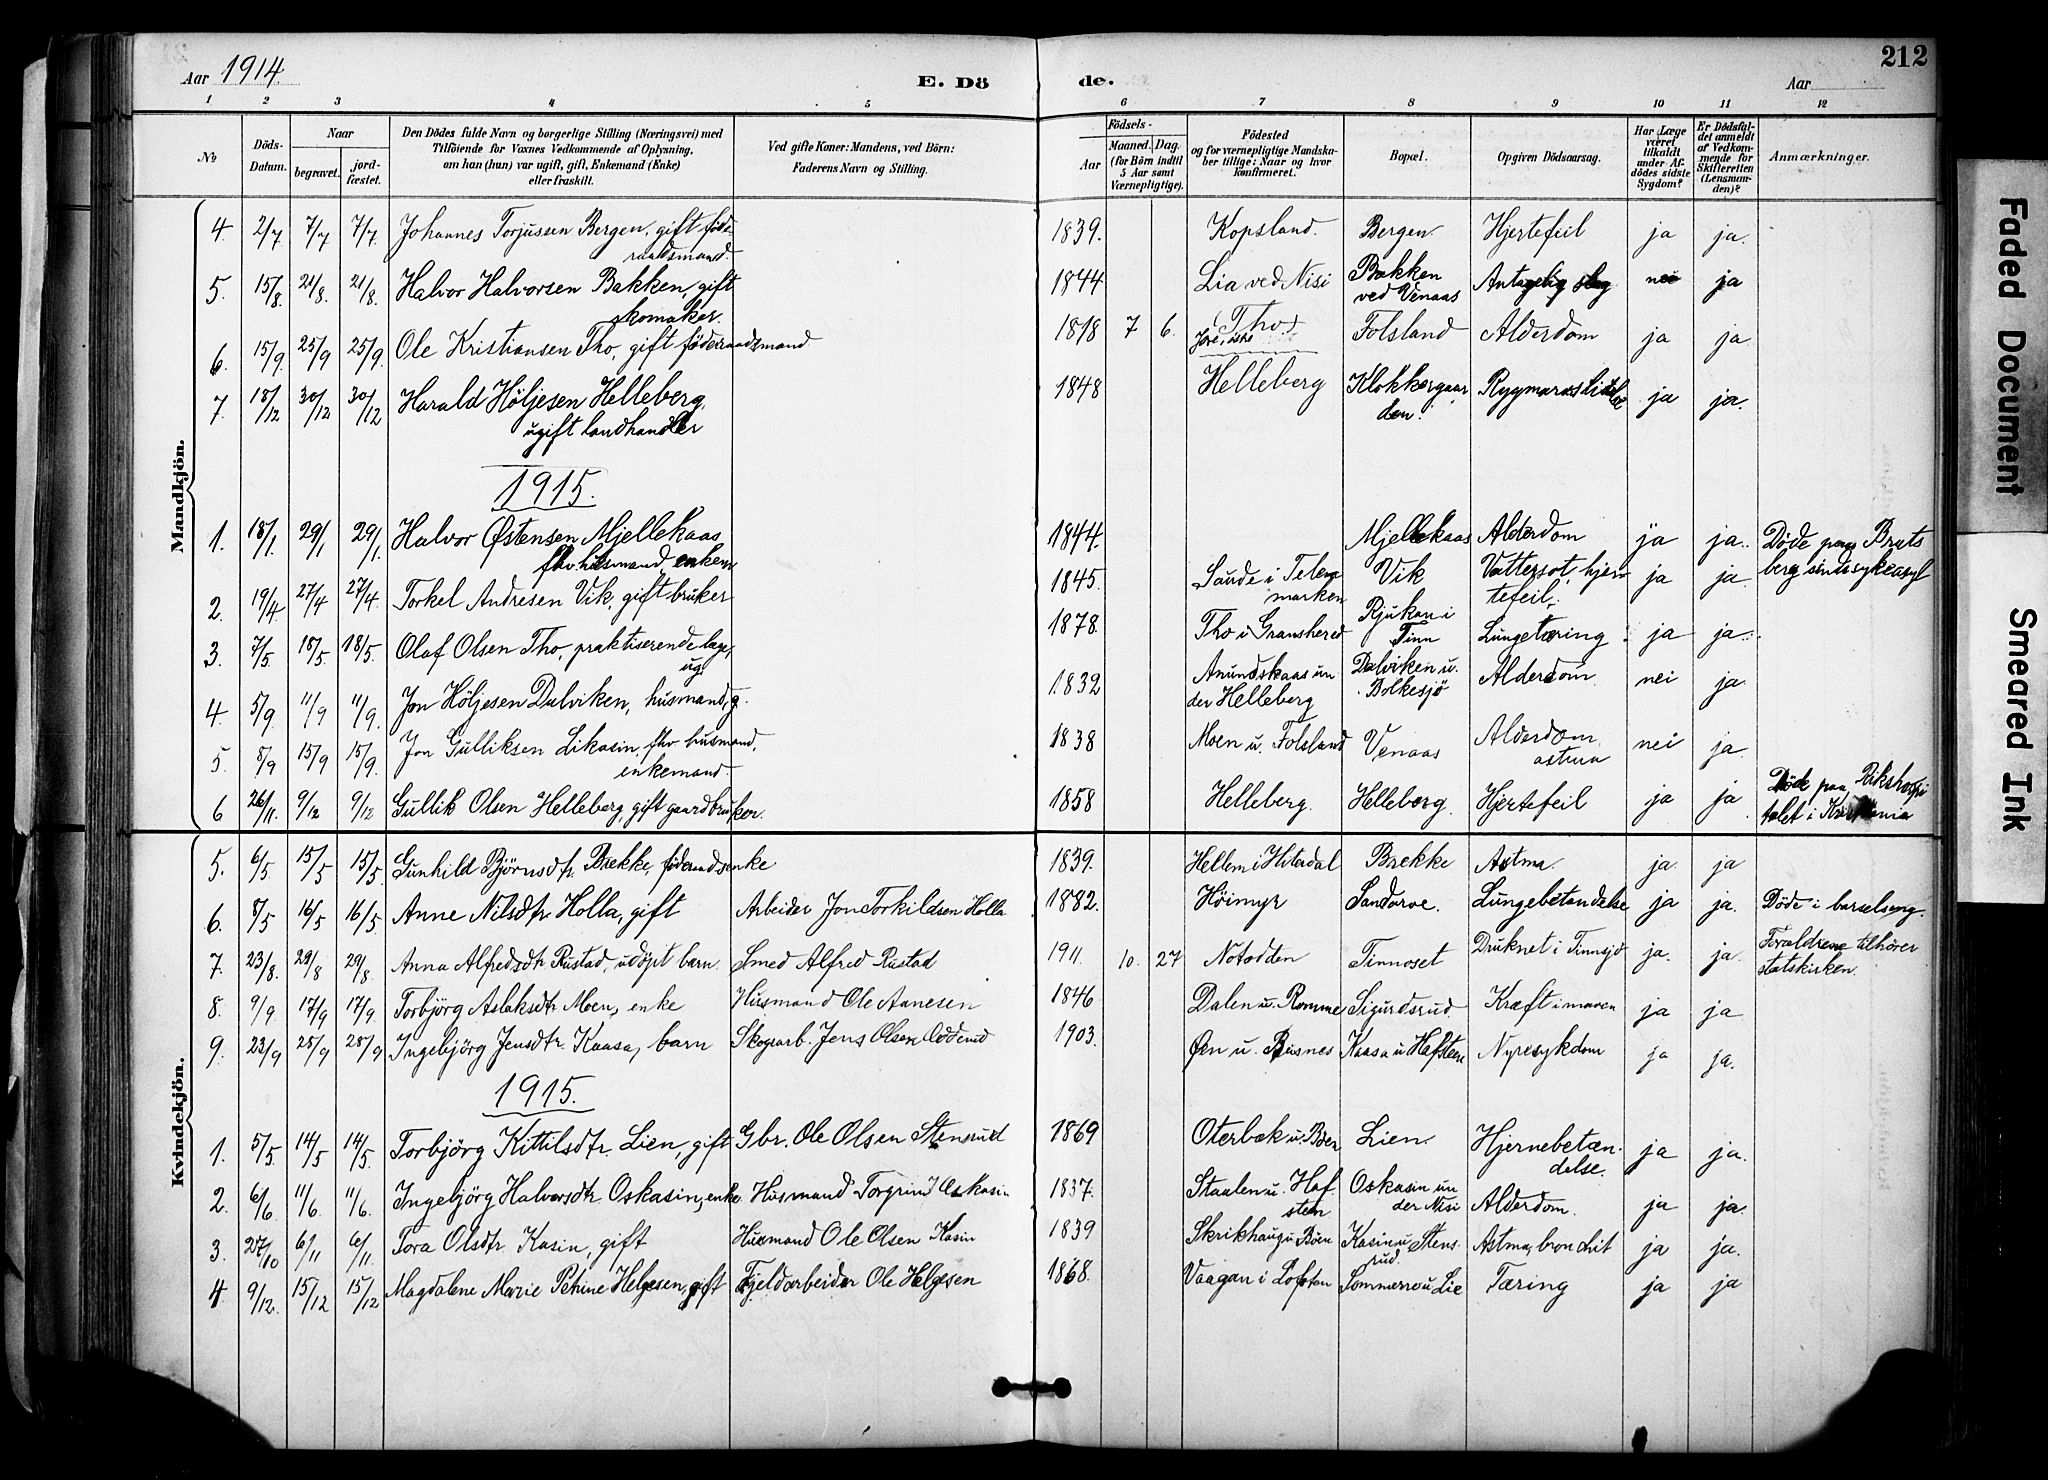 Aar 1914.
E. Dö
de.
Aar
212
1 2 3 4 5 6 7 8 9 10 11 12
No
Döds-Datum.
Naar
begravet.
jord-fæstet.
Den Dödes fulde Navn og borgerlige Stilling (Næringsvei) med
Tilföiende for Voxnes Vedkommende af Oplysning,
om han (hun) var ugift, gift, Enkemand (Enke)
eller fraskilt.
Ved gifte Koner: Mandens, ved Börn:
Faderens Navn og Stilling.
Födsels-
Aar
Maaned. Dag.
(for Börn indtil
5 Aar samt
Værnepligtige).
Födested
og for værnepligtige Mandska-
ber tillige: Naar og hvor
konfirmeret.
Bopæl.
Opgiven Dödsaarsag.
Har Læge
været
tilkaldt
under Af-
dödes sidste
Sygdom?
Er Dödsfal-
det anmeldt
af Vedkom-
mende for
Skifteretten
(Lensman-
den)?
Anmærkninger.
Mandkjön.
4. 2/7 7/7 7/7. Johannes Torjussen Bergen, gift föde- 1839. Kopsland. Bergen. Hjertefeil ja ja.
raadsmand.
5. 15/8. 21/8. 21/8. Halvor Halvorsen Bakken, gift 1844 Lia ved Nisi Bakken Antagelig slag nei ja
skomaker. ved Venaas
6. 15/9. 25/9 25/9. Ole Kristiansen Tho, gift föderaadsmand 1818 7 6. Tho Folsland Alderdom ja ja.
7. 18/12 30/12 30/12 Harald Höljesen Helleberg, 1848 Helleberg Klokkergaar Rygmarvslidelse ja ja.
ugift landhandler den.
1915.
1. 18/1. 29/1 29/1. Halvor Østensen Mjellekaas 1844. Mjellekaas Alderdom ja ja. Döde paa Brats
fhv. husmand, enkem berg sindssykeasyl
2. 19/4. 27/4 27/4. Torkel Andresen Vik, gift bruker 1845. Saude i Tele Vik Vattersot, hjer ja ja
marken tefeil.
3. 7/5. 18/5. 18/5. Olaf Olsen Tho, praktiserende læge, 1878. Tho i Gransherred Rjukan i Lungetæring ja ja.
ug. Tinn
4. 5/9. 11/9 11/9. Jon Höljesen Dalviken, husmand, g. 1832 Anundskaas un Dalviken u. Alderdom. nei ja.
der Helleberg Bolkesjö
5. 8/9 15/9 15/9. Jon Gulliksen Likasin, fhv. husmand, 1838 Moen u. Folsland Venaas Alderdom, nei ja.
enkemand. astma
6 26/11. 9/12 9/12 Gullik Olsen Helleberg, gift gaardbruker. 1858 Helleberg. Helleberg. Hjertefeil ja ja Döde paa Rikshospi
talet i Kristiania
Kvindekjön.
5. 6/5 15/5 15/5. Gunhild Björnsdtr. Brekke, föderaadsenke 1839. Hellem i Hiterdal Brekke Astma. ja. ja
6. 8/5 16/5 16/5. Anne Nilsdtr Holla, gift Arbeider Jon Torkildsen Holla 1882. Höimyr Sandarve. Lungebetændelse ja ja. Döde i barselseng.
7. 23/8. 29/8 29/8. Anna Alfredsdtr Rustad, udöpt barn Smed Alfred Rustad 1911. 10. 27 Notodden Tinnoset Druknet i Tinnsjö ja. ja. Forældrene tilhörer
statskirken.
8. 9/9. 17/9 17/9. Torbjörg Aslaksdtr Moen, enke Husmand Ole Annesen 1846 Dalen u. Romme Sigurdsrud. Kræft i maven ja ja.
9. 23/9 28/9 28/9 Ingebjörg Jensdtr. Kaasa, barn Skogsarb. Jens Olsen 1903. Øen u. Busnes Kaasa u Hafsten Nyresykdom ja ja.
1915.
1. 5/5. 14/5 14/5. Torbjörg Kittilsdtr. Lien, gift Gbr. Ole Olsen Stensrud 1869 Oterbæk u. Böen Lien. Hjernebetæn- ja ja.
delse.
2. 6/6 11/6. 11/6. Ingebjörg Halvorsdtr Oskasin, enke Husmand Torgrim Oskasin 1837. Staalen u. Haf- Oskasin un Alderdom. ja ja.
sten der Nisi
3. 27/10 6/11 6/11. Tora Olsdtr Kasin, gift Husmand Ole Olsen Kasin 1839 Skrikhaug u Böen Kasin u. Stens- Astma, bronchit ja ja.
rud.
4 9/12. 15/12 15/12 Magdalene Marie Petrine Helgesen, gift Fjeldarbeider Ole Helgesen 1868. Vaagan i Lofoten Sommerro u Lie Tæring ja ja
Faded Document
Smeared Ink